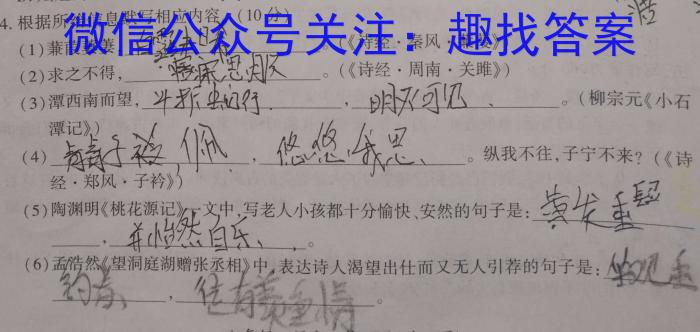 微信公众号关注：趣找答案
4. 根据所给信息默写相应内容。（10分）
(1) 蒹葭萋萋，（《诗经·秦风·蒹葭》）
(2) 求之不得，寤寐思服。（《诗经·周南·关雎》）
(3) 潭西南而望，斗折蛇行，明灭可见。（柳宗元《小石
潭记》）
(4) 青青子 佩，悠悠我思。纵我不往，子宁不来？（《诗
经·郑风·子衿》）
(5) 陶渊明《桃花源记》一文中，写老人小孩都十分愉快、安然的句子是：黄发垂髫
，并怡然自乐。
(6) 孟浩然《望洞庭湖赠张丞相》中，表达诗人渴望出仕而又无人引荐的句子是：坐观垂
钓者，徒有羡鱼情。